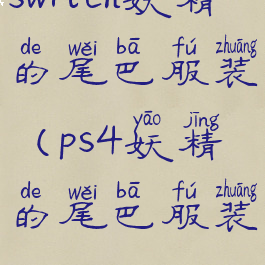 switch妖精
de wěi bā fú zhuāng
的尾巴服装
yāo jīng
(ps4妖精
de wěi bā fú zhuāng
的尾巴服装